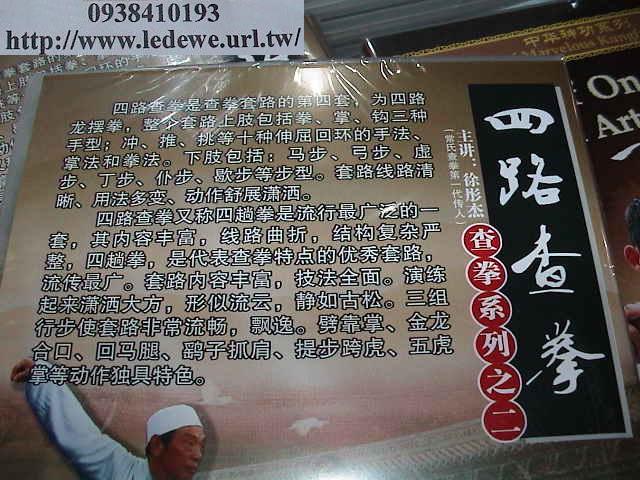 0938410193
http://www.ledewe.url.tw/
四路查拳是查拳套路的第四套，为四路
龙摆拳，整个套路上肢包括拳、掌、钩三种
手型；冲、推、挑等十种伸屈回环的手法、
掌法和拳法。下肢包括：马步、弓步、虚
步、丁步、仆步、歇步等步型。套路线路清
晰、用法多变、动作舒展潇洒。
四路查拳又称四趟拳是流行最广泛的一
套，其内容丰富，线路曲折，结构复杂严
整，四趟拳，是代表查拳特点的优秀套路，
流传最广。套路内容丰富，技法全面。演练
起来潇洒大方，形似流云，静如古松。三组
行步使套路非常流畅，飘逸。劈靠掌、金龙
合口、回马腿、鹞子抓肩、提步跨虎、五虎
掌等动作独具特色。
四路查拳
主讲：徐彤杰
查拳系列之二
中华神功系列
Marvelous
On
Art